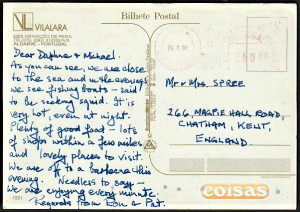 Bilhete Postal
VILALARA
ARMAÇÃO DE PÊRA
ALGARVE - PORTUGAL
Dear Daphne & Michael.
As you can see, we are close
to the sea and in the evenings
we see fishing boats - said
to be seeking squid. It is
very hot, even at night.
Plenty of good food - lots
of shops within a few miles
and lovely places to visit.
We are off to a barbecue this
evening. Needless to say -
we are enjoying every minute.
Regards from Ron & Pat.
Mr & Mrs. SPREE
266, MAGPIE HALL ROAD,
CHATHAM, KENT,
ENGLAND.
coisas